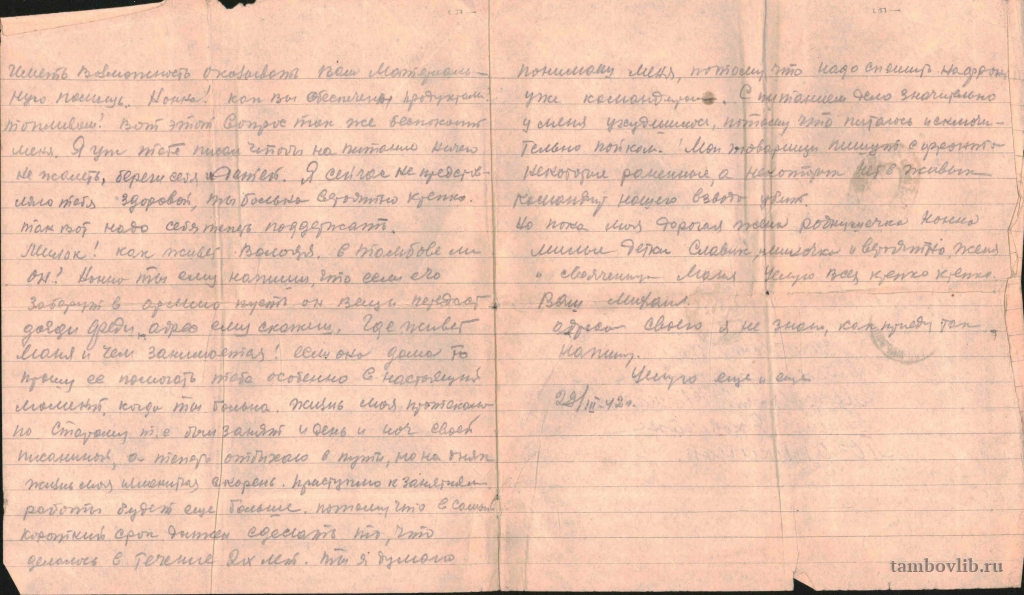 иметь возможность оказывать Вам материаль-
ную помощь. Нонна! как вы обеспечены продуктами
топливом! Вот этот вопрос так же беспокоит
меня. Я уж тебе писал чтобы на питание ничего
не жалеть, береги себя и детей. Я сейчас не представ-
ляю тебя здоровой, ты больна вероятно крепко.
так вот надо себя теперь поддержать.
Милок! как живет Володя. в Тамбове ли
он! Нонна ты ему напиши, что если его
заберут в армию пусть он вещи передаст
дяди Феди, адрес ему скажеш. Где живет
Маня и чем занимается! если она дома то
прошу ее помогать тебе особенно в настоящий
момент, когда ты больна. Жизнь моя протекала
по старому т.е был занят и день и ноч своей
писаниной, а теперь отдыхаю в пути, но на днях
жизнь моя изменится в корень. Приступлю к занятиям
работы будет еще больше. потому что в самый
короткий срок должен сделать то, что
делалось в течение 2х лет. ты я думаю
понимаеш меня, потому что надо спешить на фронт
уже командиром. С питанием дело значительно
у меня ухудшилось, потому что питаюсь исключи-
тельно пойком. Мои товарищи пишут с фронта
некоторые раненные, а некоторых нет в живых
командир нашего взвода убит.
Но пока моя дорогая жена родимушечка Нонна
милые детки Славик и вероятно, Женя
и свояченица Маня Целую всех крепко крепко.
Ваш Михаил.
адреса своего я не знаю, как приеду так
напишу.
Целую еще и еще
22/III-42г.
tambovlib.ru